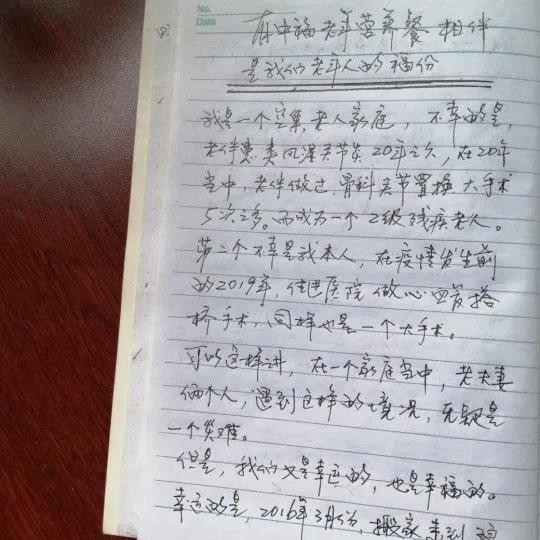 No.
Date
有中福老年营养餐相伴
是我们老年人的福份
我是一个空巢老人家庭，不幸的是，
老伴患类风湿关节炎20年之久，在20年
当中，老伴做过骨科关节置换大手术
5次之多。而成为一个2级残疾老人。
第二个不幸是我本人，在疫情发生前
的2019年，住进医院做心血管搭
桥手术，同样也是一个大手术。
可以这样讲，在一个家庭当中，老夫妻
俩个人，遇到这样的境况，无疑是
一个灾难。
但是，我们又是幸运的，也是幸福的。
幸运的是，2016年3月份，搬家来到